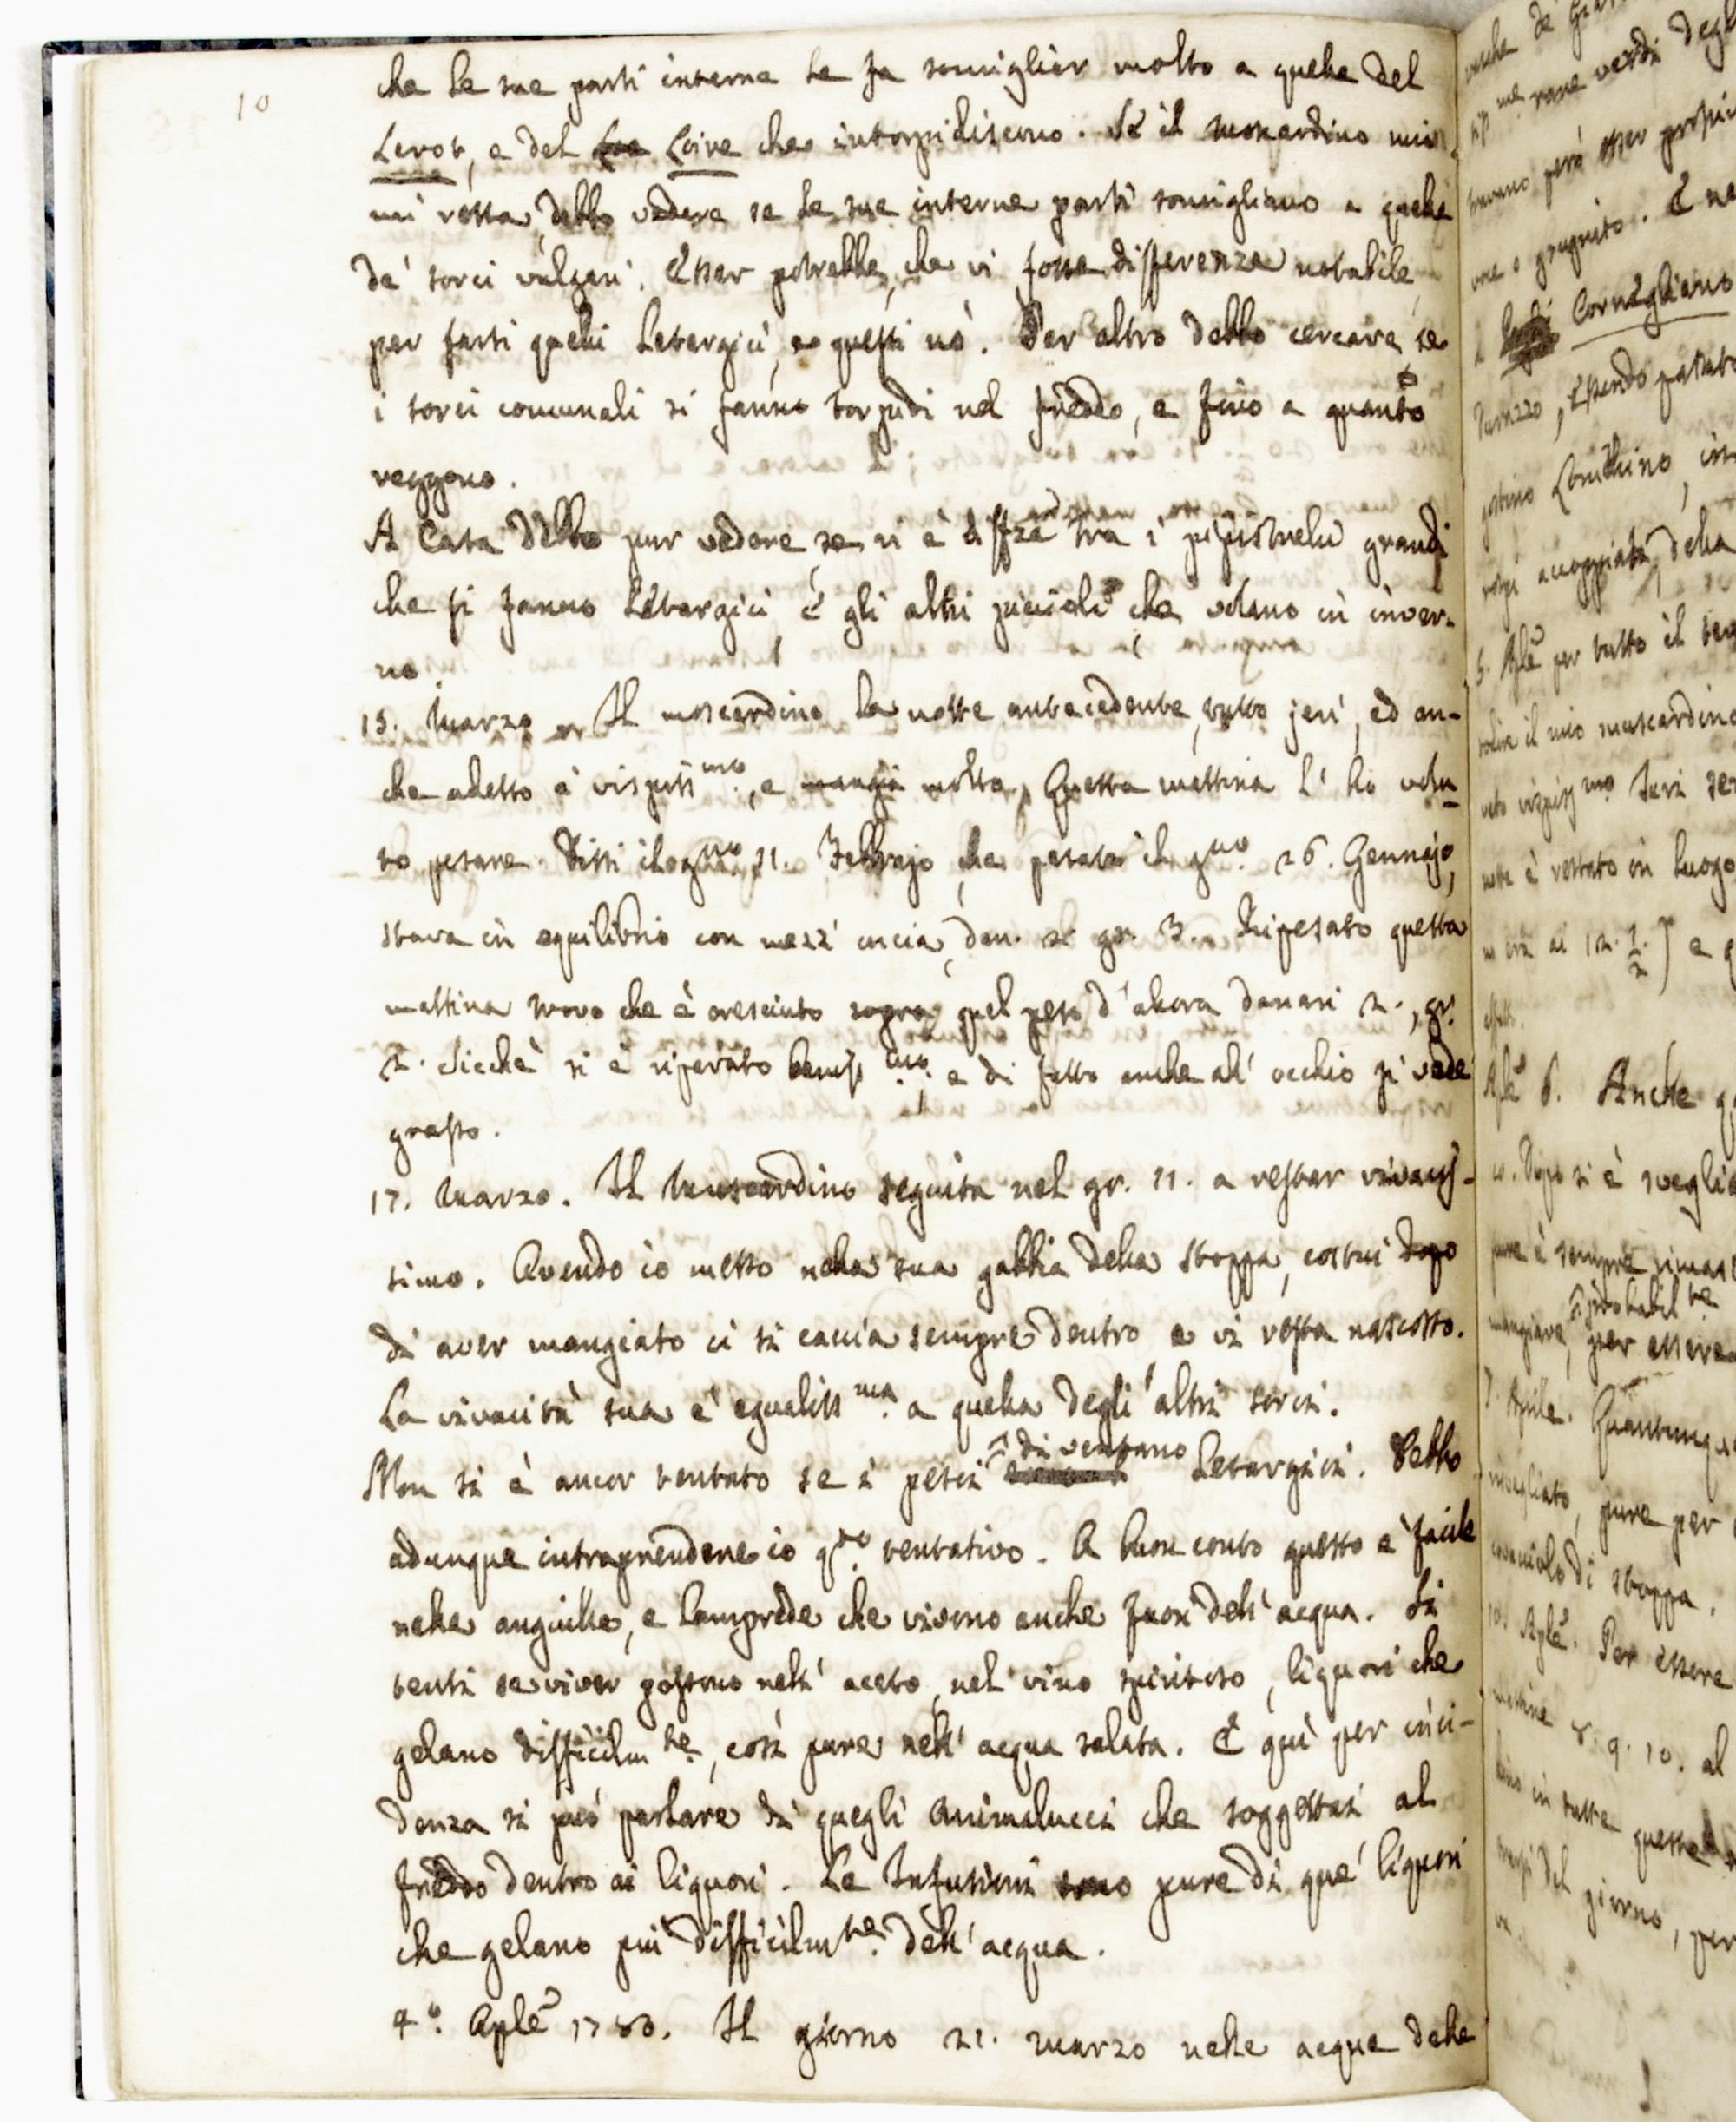 10
che le sue parti interne le fa somiglier molto a quelle del
Lerot, e del Loire che intorpidiscono. Se il moscardino mio
mi resta, debbo vedere se le sue interne parti somigliano a quelle
de' sorci vulgari. Esser potrebbe, che vi fosse differenza notabile
per farsi quelli letargici, e questi nò. Per altro debbo cercare, se
i sorci comunali si fanno torpidi nel freddo, e fino a quanto
reggono.
A Casa debbo pur vedere, se vi è diffza tra i pipistrelli grandi
che si fanno letargici, e gli altri piccioli che volano in inver-
no.
15. Marzo. Il moscardino la notte antecedente, tutto jeri, ed an-
che adesso è vispiss mo, e mangia molto. Questa mattina l' ho volu-
to pesare. Dissi il g.no 11. Febbrajo, che pesato il g.no 26. Gennajo,
stava in equilibrio con mezz' oncia, den. 2. gr. 3. Ripesato questa
mattina trovo che è cresciuto sopra quel peso d'allora danari 2., gr.
2. Sicchè si è riferato beniss mo. e di fatto anche all' occhio si vede
grasso.
17. Marzo. Il Muscardino seguita nel gr. 11. a restar vivacis-
simo. Avendo io messo nella sua gabbia della stoppa, costui dopo
di aver mangiato ci si caccia sempre dentro e vi resta nascosto.
La vivacità sua è egualiss ma. a quella degli altri sorci.
Non si è ancor tentato se i pesci diventano letargici. Debbo
adunque intraprendere io q.to tentativo. A buon conto questo è facile
nelle anguille, e lamprede che vivono anche fuori dell' acqua. Si
tenti se viver possono nell' aceto, nel vino spiritoso, liquori che
gelano difficilm te, così pure nell' acqua salata. E quì per inci-
denza si può parlare di quegli Animalucci che soggettai al
freddo dentro ai liquori. Le Infusioni sono pure di que' liquori
che gelano più difficilm te. dell' acqua.
4.° Aple 1783. Il giorno 21. marzo nelle acque delle
Cornegliano
essendo passato
della
per tutto il
il mio muscardino
è restato in luogo
Aple 6. Anche
Dopo si è
è sempre
probabil te
mangiare, per essere
7. Aprile. Quantunque
pure per
di stoppa.
10. Aple. Per essere
9. 10. al
in tutte queste
del giorno, per